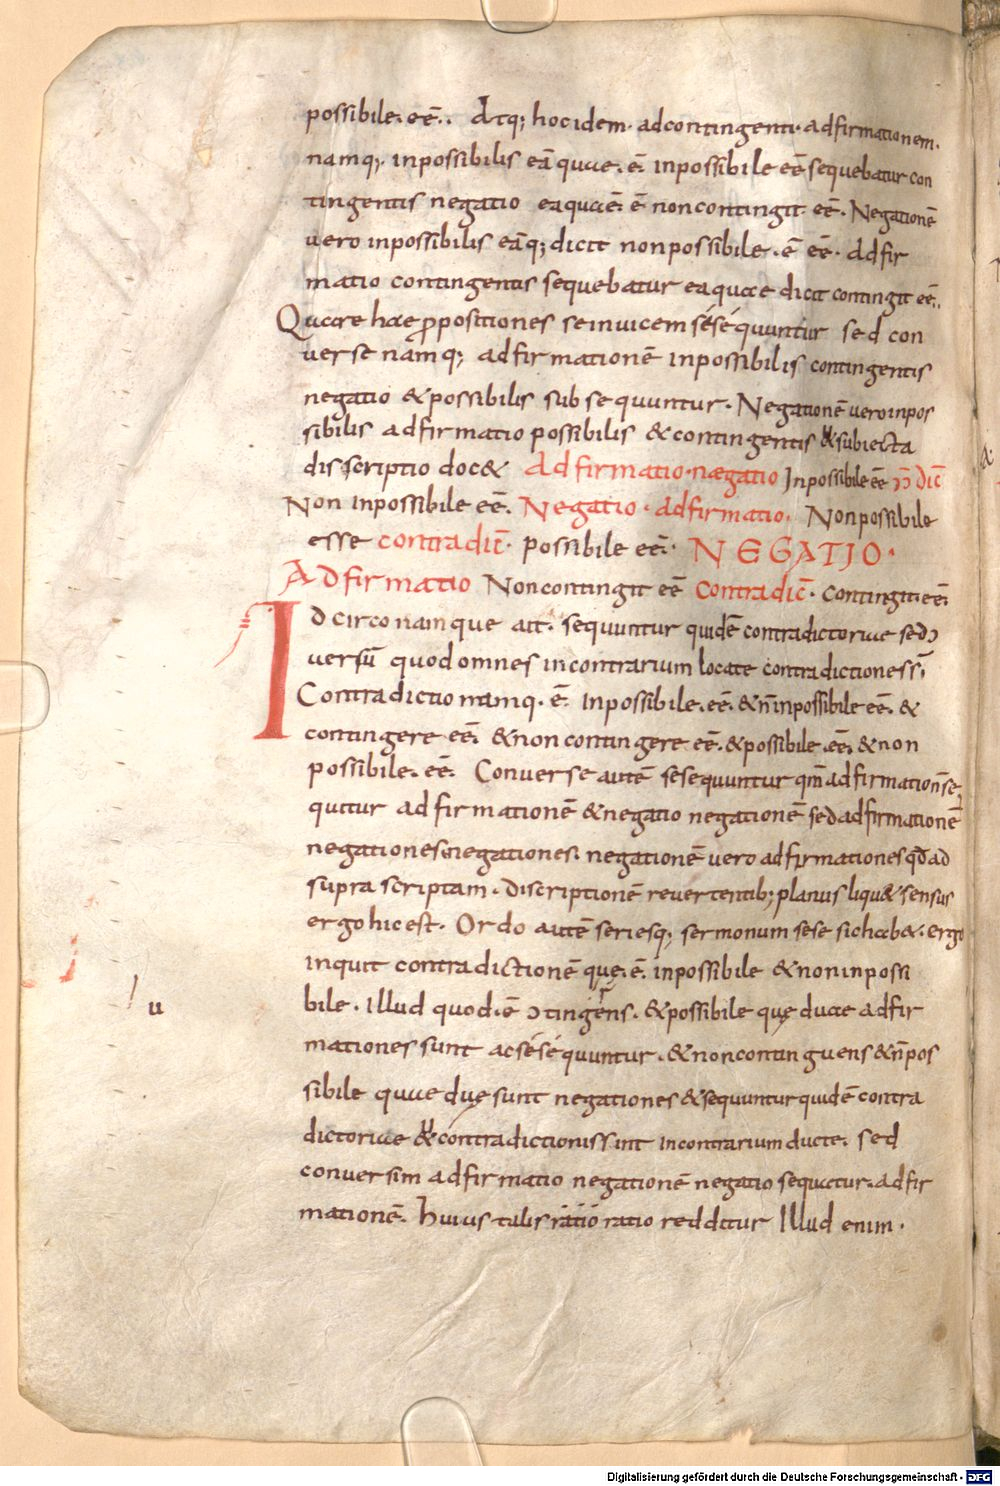 possibile. eē.. Atq; hoc idem. ad contingenti. adfirmationem.
namq;. inpossibilis eā quae. ē. inpossibile eē sequebatur con
tingentis negatio ea quaē. ē non contingit. eē. Negationē
vero inpossibilis eāq; dicit non possibile. ē eē. Adfir
matio contingentis sequebatur ea quae dicit contingit eē..
Quare hae ꝓpositiones se invicem sése séquuntur sed con
verse namq; adfirmationē inpossibilis contingentis
negatio & possibilis subsequuntur. Negationē vero inpos
sibilis adfirmatio possibilis & contingentis & subiecta
discriptio doc& Adfirmatio. nægatio Inpossibile eē ↄ̄ dic̄
Non inpossibile eē. Negatio. adfirmatio. Non possibile
esse contradic̄. possibile eē. NEGATIO.
Adfirmatio Non contingit eē contradic̄. contingit eē.
Idcirco namque ait. sequuntur quidē contradictoriae sed ↄ
versū quod omnes in contrarium locate contradictiones s̄.
Contradictio namq. ē. Inpossibile. eē. & n̄ inpossibile eē. &
contingere eē. & non contingere eē. & possibile. eē. & non
possibile. eē. Converse autē sese quuntur qm̄ adfirmation̄ se
quitur adfirmationē & negatio negationē sed adfirmationē
negationes. negationes. negationē vero adfirmationes qd̄ ad
supra scriptam. discriptionē revertentib; planus liqu& sensus
ergo hic est. Ordo autē seriesq; sermonum sese sic hab&. ergo
inquit contradictionē quę. ē. inpossibile & non inpossi
bile. Illud quod. ē ↄtingens. & possibile quę duae adfir
mationes sunt ac sése séquuntur. & non continguens & n̄ pos
sibile quae duę sunt negationes & sequuntur quidē contra
dictoriae & contradictionis sint in contrarium ducte. sed
conversim adfirmatio negationē negatio sequetur. adfir
mationē. huius talis ratio ratio redditur Illud enim.
u
Digitalisierung gefördert durch die Deutsche Forschungsgemeinschaft - DFG